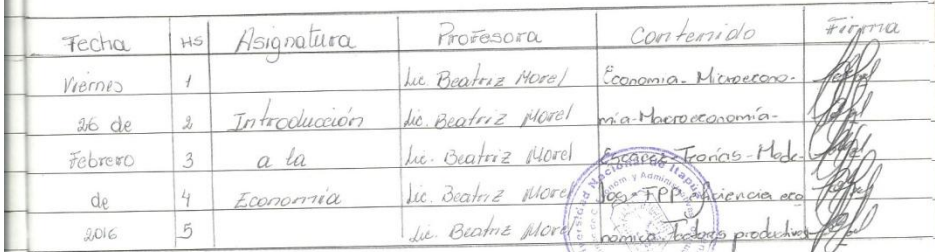 Fecha HS Asignatura Profesora Contenido Firma
Viernes 1 Lic. Beatriz Morel Economía - Microecono-
26 de 2 Introducción Lic. Beatriz Morel mía - Macroeconomía -
Febrero 3 a la Lic. Beatriz Morel Escasez - Teorías - Mode-
de 4 Economía Lic. Beatriz Morel los - FPP - eficiencia eco
2016 5 Lic. Beatriz Morel nómica productivos